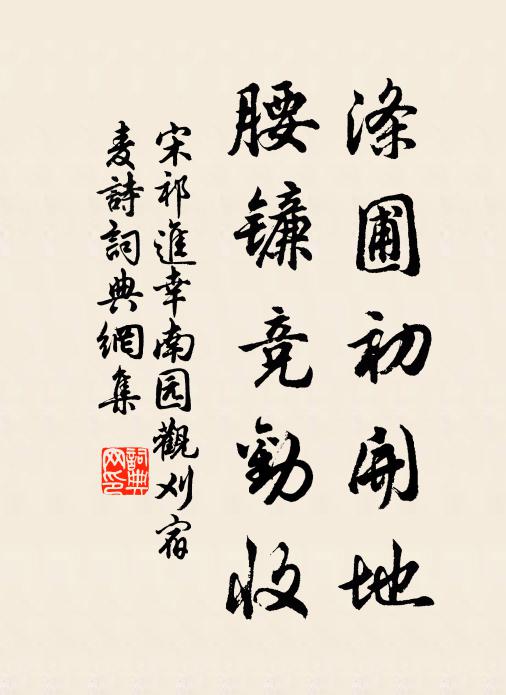 涤圃初開地
腰镰竞勸收
宋祁進幸南园觀刈宿
麦詩詞典網集
詞典网印